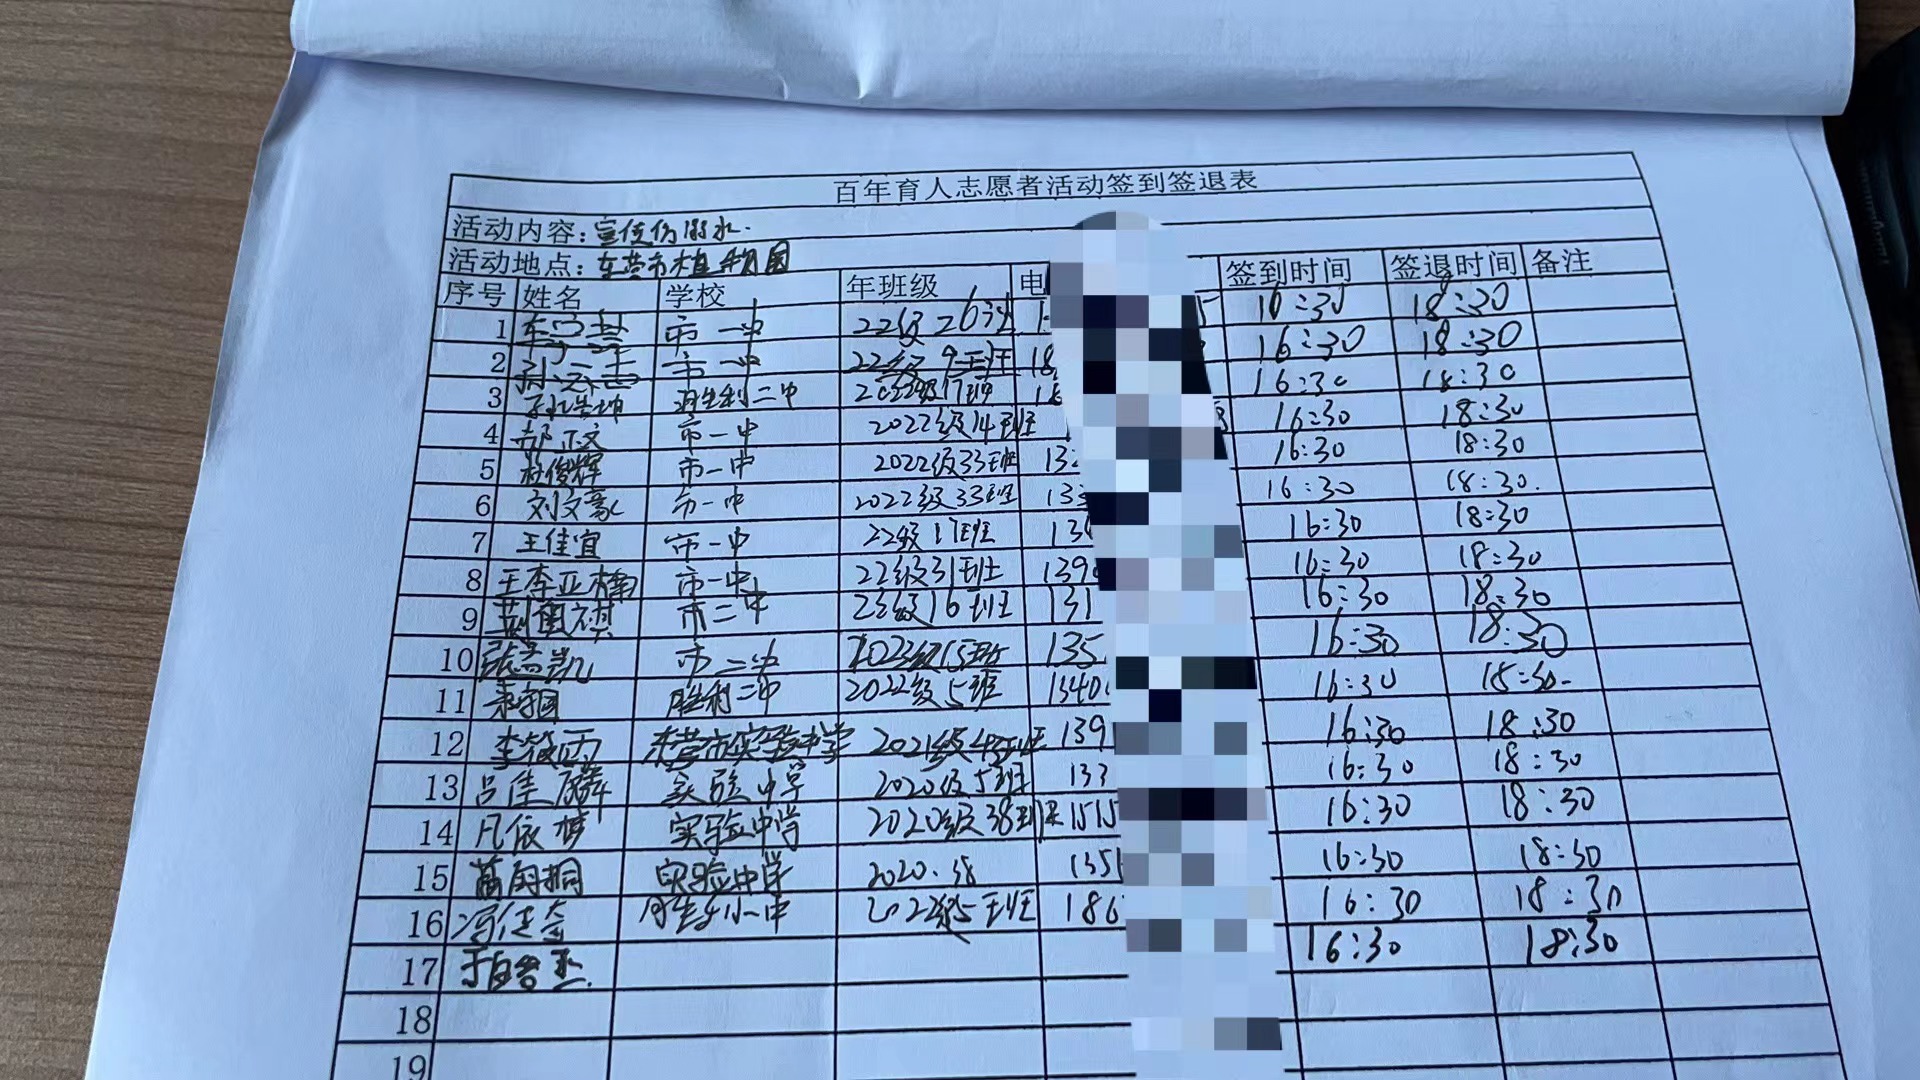 百年育人志愿者活动签到签退表
活动内容：宣传防溺水.
活动地点：东营市植物园
序号 姓名 学校 年班级 电 签到时间 签退时间 备注
1 市一中 22级26班 16:30 18:30
2 市一中 22级9班 18 16:30 18:30
3 胜利二中 2022级17班 16:30 18:30
4 郝正文 市一中 2022级14班 16:30 18:30
5 杜俊辉 市一中 2022级33班 132 16:30 18:30
6 刘文豪 市一中 2022级33班 133 16:30 18:30.
7 王佳宜 市一中 22级17班 139 16:30 18:30
8 王李亚楠 市一中 22级31班 139 16:30 18:30
9 市二中 23级16班 131 16:30 18:30
10 张益凯 市二中 2023级15班 135 16:30 18:30
11 胜利二中 2022级5班 1340 16:30 18:30
12 李筱雨 东营市实验中学 2021级4班 139 16:30 18:30
13 吕佳麟 实验中学 2020级5班 133 16:30 18:30
14 凡依梦 实验中学 2020级38班 1515 16:30 18:30
15 实验中学 2020.38 135 16:30 18:30
16 2022级5班 186 16:30 18:30
17 16:30 18:30
18
19